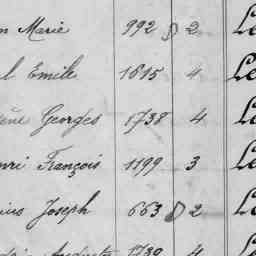 n Marie 992 2 Le
l Emile 1615 4 Le
ène Georges 1738 4 Le
enri François 1199 3 Le
ius Joseph 663 2 Le
1739 4